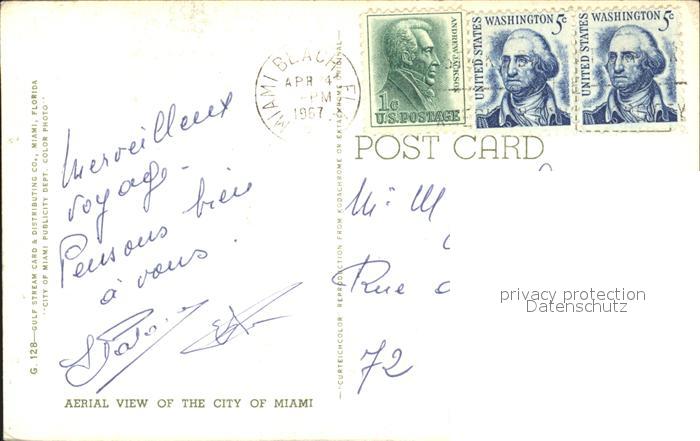 G. 128—GULF STREAM CARD & DISTRIBUTING CO., MIAMI, FLORIDA
"CITY OF MIAMI PUBLICITY DEPT. COLOR PHOTO"
Merveilleux
voyage.
Pensons bien
à vous.
AERIAL VIEW OF THE CITY OF MIAMI
—"CURTEICHCOLOR" REPRODUCTION FROM KODACHROME OR EKTACHROME ORIGINAL—
MIAMI BEACH, FL
APR 4
-PM
1967
ANDREW JACKSON
1c
U.S. POSTAGE
UNITED STATES
WASHINGTON 5c
UNITED STATES
WASHINGTON 5c
POST CARD
Mr M
Rue
72
privacy protection
Datenschutz